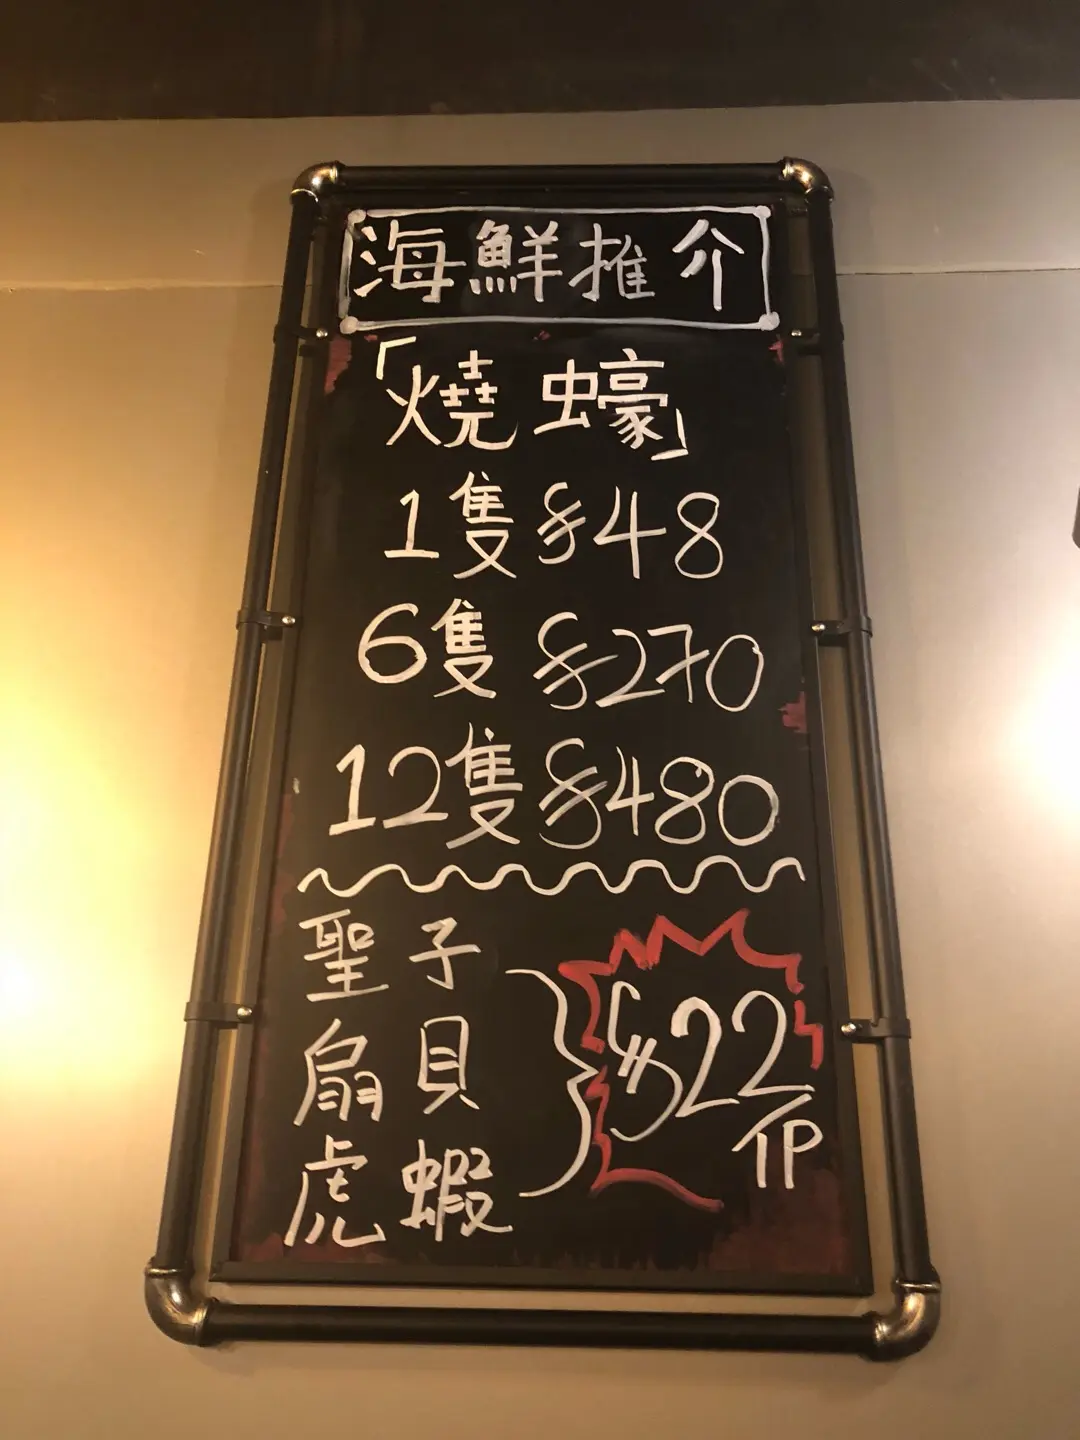 海鮮推介
「燒蠔」
1隻 $48
6隻 $270
12隻 $480
聖子
扇貝
虎蝦
$22/1P